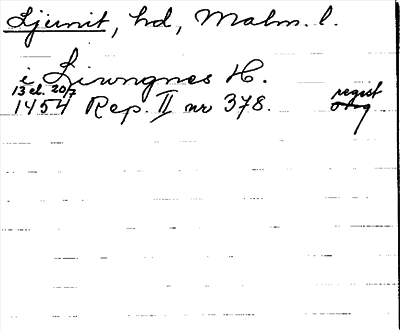 Ljunit, hd, Malm. l.
i Liwngnes H.
13 el. 20/7
1454 Rep. II nr 378. regest
orig